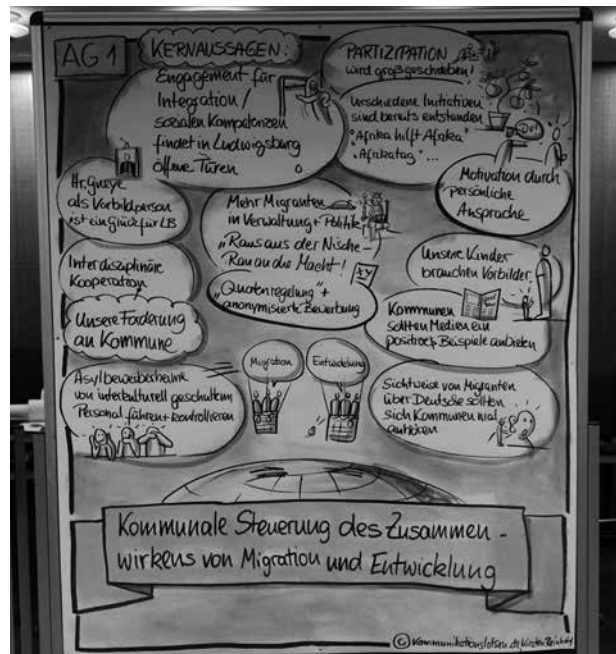 AG 1
KERNAUSSAGEN:
Engagement für
Integration/
sozialen Kompetenzen
findet in Ludwigsburg
offene Türen
PARTIZIPATION
wird großgeschrieben!
Verschiedene Initiativen
sind bereits entstanden
"Afrika hilft Afrika"
"Afrikatag"...
Du!
Motivation durch
persönliche
Ansprache
Hr. Gueye
als Vorbildperson
ist ein Glück für LB
Mehr Migranten
in Verwaltung + Politik
"Raus aus der Nische -
Ran an die Macht!
"Quotenregelung" +
anonymisierte Bewerbung
XY
Unsere Kinder
brauchen Vorbilder
Interdisziplinäre
Kooperation
Unsere Forderung
an Kommune
Kommunen
sollten Medien ein
Beispiele anbieten
Asylbewerberheime
von interkulturell geschultem
Personal führen + kontrollieren
Migration
Entwicklung
Sichtweise von Migranten
über Deutsche sollten
sich Kommunen mal
anhören
Kommunale Steuerung des Zusammen-
wirkens von Migration und Entwicklung
© Kommunikationslotsen.de